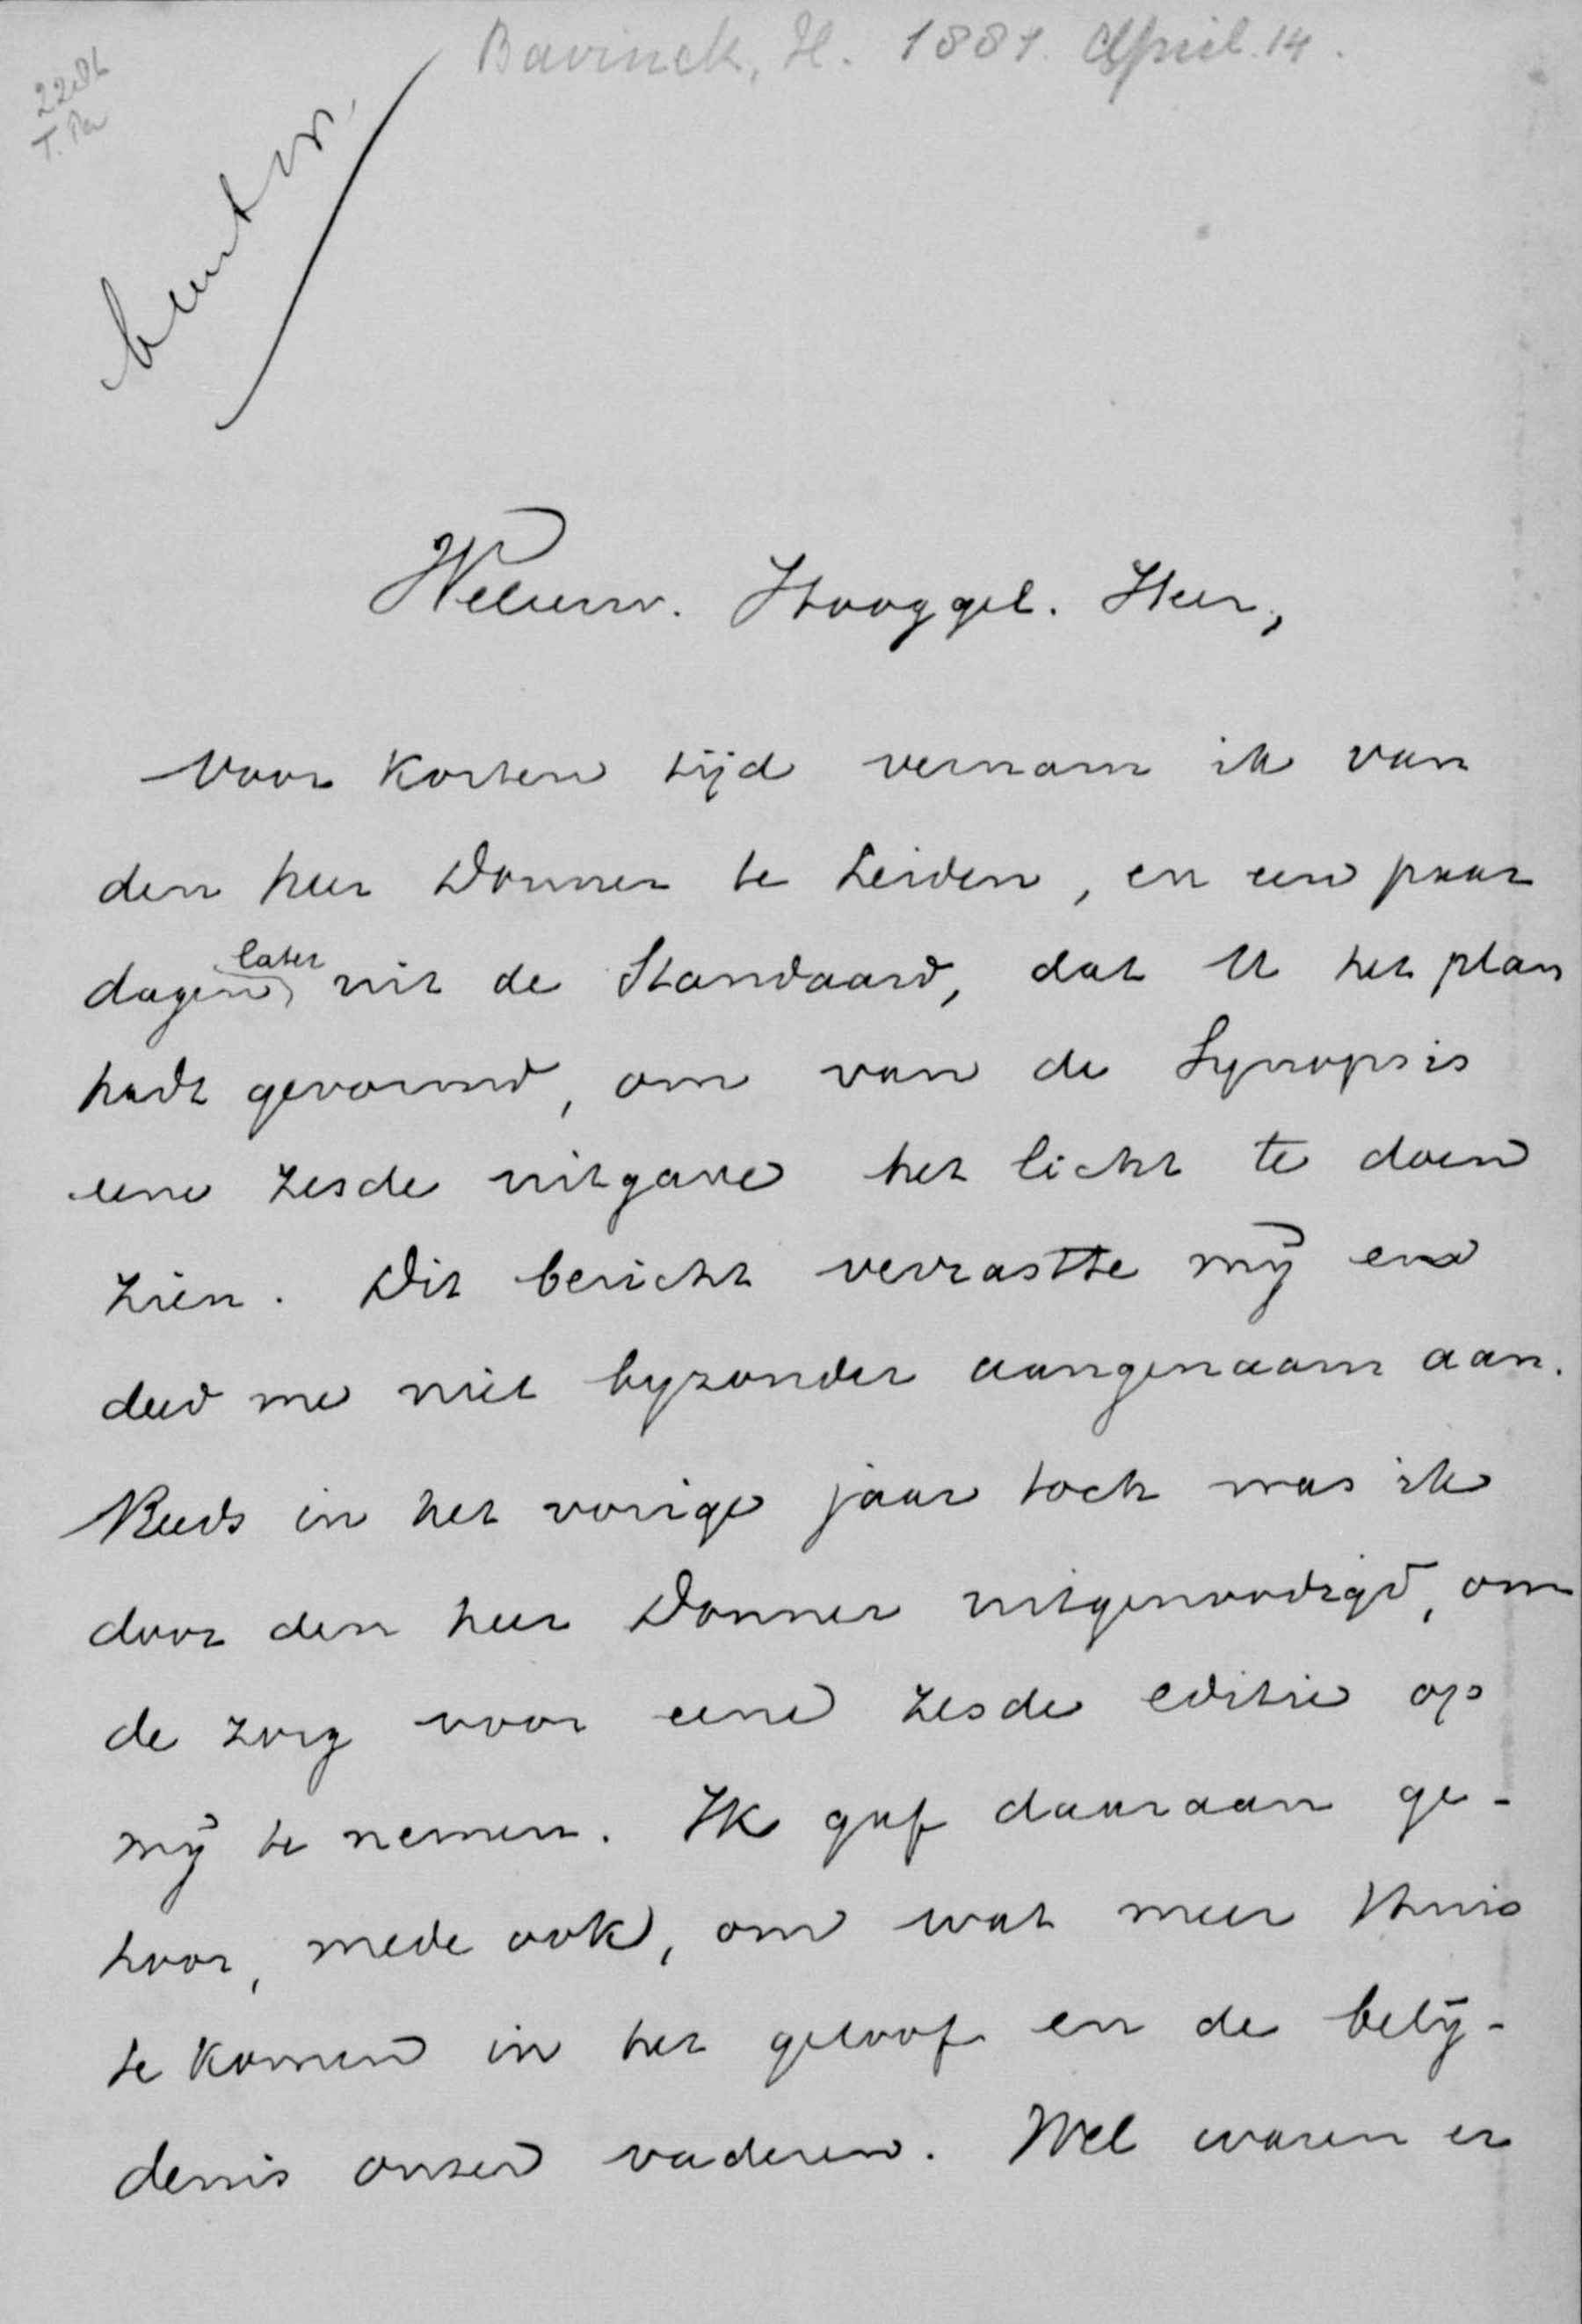 Bavinck, H. 1881. April. 14.
Weleerw. Hooggel. Heer,
Voor korten tijd vernam ik van
den heer Donner te Leiden, en een paar
dagen later uit de Standaard, dat U het plan
hadt gevormd, om van de Synopsis
eene zesde uitgave het licht te doen
zien. Dit bericht verrastte mij en
deed me niet byzonder aangenaam aan.
Reeds in het vorige jaar toch was ik
door den heer Donner uitgenoodigd, om
de zorg voor eene zesde editie op
mij te nemen. Ik gaf daaraan ge-
hoor, mede ook, om wat meer thuis
te komen in het geloof en de belij-
denis onzer vaderen. Wel waren er